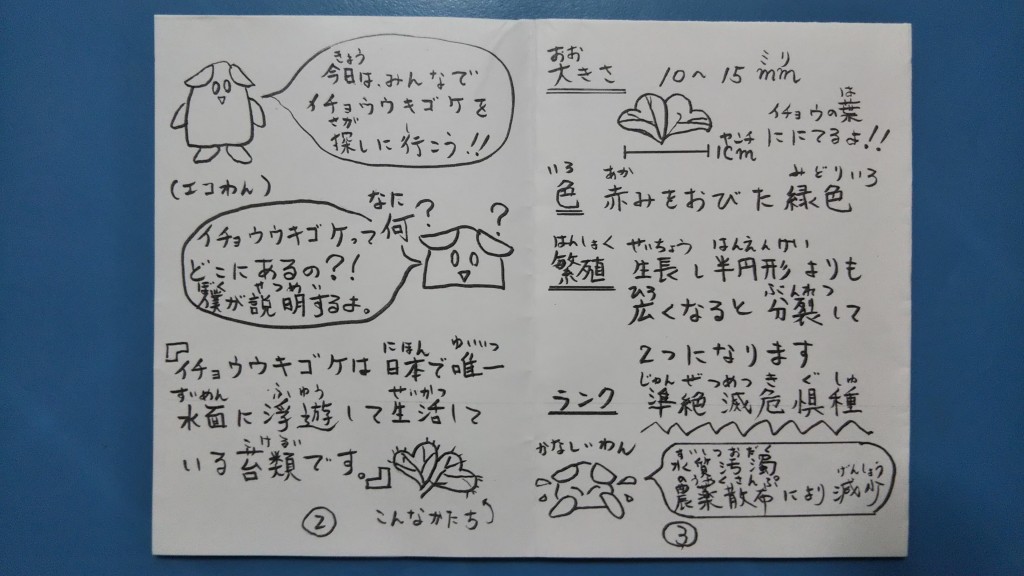 きょう
今日は、みんなで
イチョウウキゴケを
さが
探しに行こう!!
(エコわん)
なに
何??
イチョウウキゴケって
どこにあるの?!
ぼく せつめい
僕が説明するよ。
『イチョウウキゴケは にほん ゆいいつ
日本で唯一
すいめん ふゆう せいかつ
水面に浮遊して生活して
たいるい
いる苔類です。』
こんなかたち
②
おお
大きさ
ミリ
10〜15mm
センチ
1cm
は
イチョウの葉
ににてるよ!!
いろ
色
あか みどりいろ
赤みをおびた緑色
はんしょく
繁殖
せいちょう はんえんけい
生長し半円形よりも
ひろ ぶんれつ
広くなると分裂して
2つになります
ランク
じゅんぜつめつきぐしゅ
準絶滅危惧種
かなしいわん
すいしつおだく
水質汚濁
のうやくさんぷ げんしょう
農薬散布により減少
③